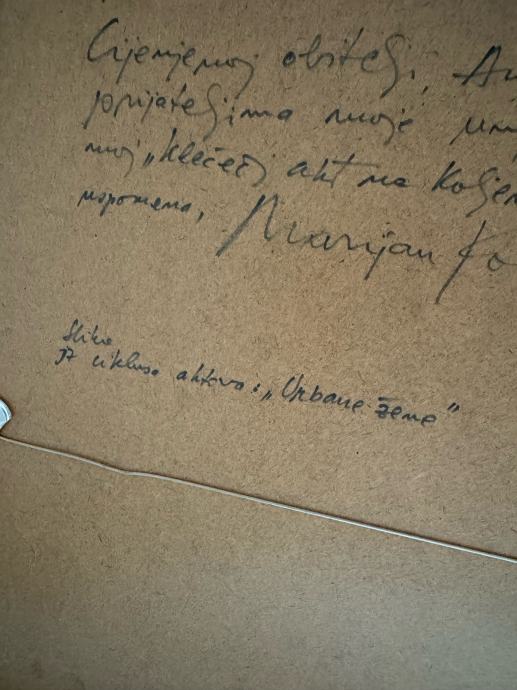 Cijenjenoj obitelji, An
prijateljima moje um
moj „Klečeći akt na Koljen
uspomena, Marijan Ko
Slika
iz ciklusa aktova: „Urbane žene"